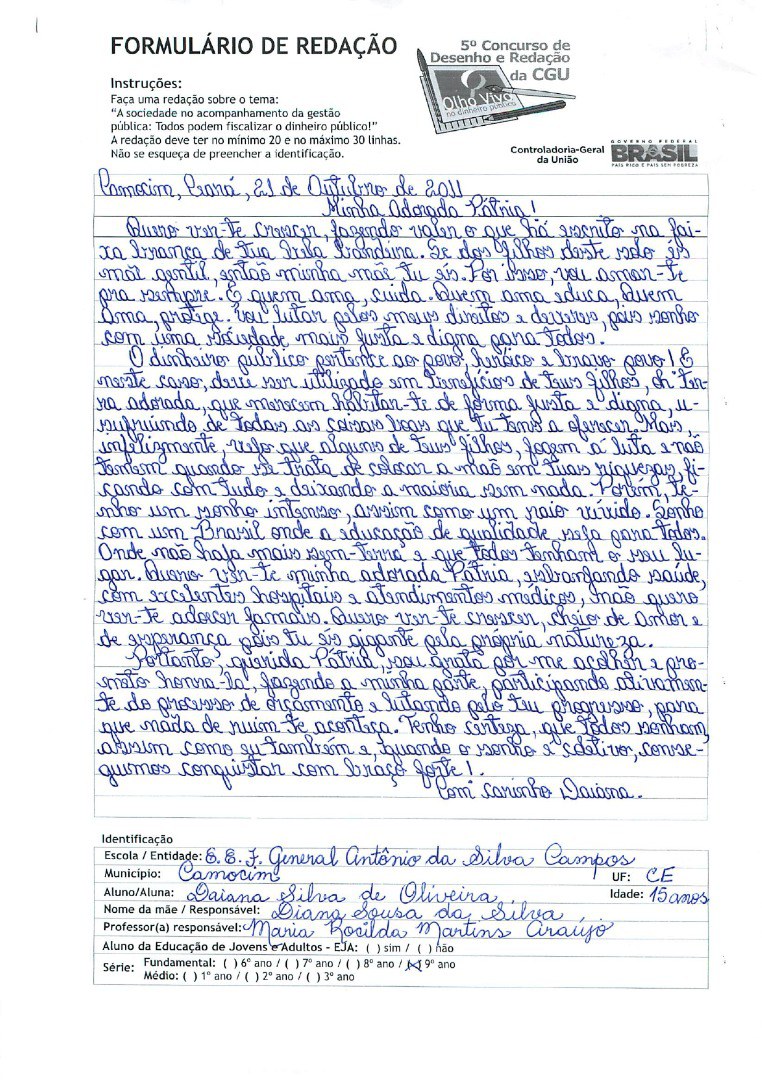 FORMULÁRIO DE REDAÇÃO
5º Concurso de
Desenho e Redação
da CGU
Olho Vivo
no dinheiro público
Instruções:
Faça uma redação sobre o tema:
"A sociedade no acompanhamento da gestão
pública: Todos podem fiscalizar o dinheiro público!"
A redação deve ter no mínimo 20 e no máximo 30 linhas.
Não se esqueça de preencher a identificação.
Controladoria-Geral
da União
GOVERNO FEDERAL
BRASIL
PAÍS RICO É PAÍS SEM POBREZA
Camocim, Ceará, 21 de Outubro de 2011
Minha Adorada Pátria!
Quero ver-te crescer, fazendo valer o que há escrito na fai-
xa branca de tua bela bandeira. Se dos filhos deste solo és
mãe gentil, então minha mãe tu és. Por isso, vou amar-te
pra sempre. E quem ama, cuida. Quem ama educa, Quem
ama, protege. Vou lutar pelos meus direitos e deveres, pois sonho
com uma sociedade mais justa e digna para todos.
O dinheiro público pertence ao povo, heróico e bravo povo! E
neste caso, deve ser utilizado em benefícios de teus filhos, oh ter-
ra adorada, que merecem habitar-te de forma justa e digna, u-
sufruindo de todas as coisas boas que tu tens a oferecer. Mas,
infelizmente, vejo que alguns de teus filhos, fogem à luta e não
temem quando se trata de colocar a mão em tuas riquezas, fi-
cando com tudo e deixando a maioria sem nada. Porém, te-
nho um sonho intenso, assim como um raio vívido. Sonho
com um Brasil onde a educação de qualidade seja para todos.
Onde não haja mais sem-terra e que todos tenham o seu lu-
gar. Quero ver-te minha adorada Pátria, esbanjando saúde,
com excelentes hospitais e atendimentos médicos, não quero
ver-te adoecer jamais. Quero ver-te crescer, cheio de amor e
de esperança, pois tu és gigante pela própria natureza.
Portanto, querida Pátria, sou grata por me acolher e pro-
meto honra-la, fazendo a minha parte, participando ativamen-
te do processo de orçamento e lutando pelo teu progresso, para
que nada de ruim te aconteça. Tenho certeza, que todos sonham,
assim como eu também e, quando o sonho é coletivo, conse-
guimos conquistar com braço forte!.
Com carinho Daiana.
Identificação
Escola / Entidade: E. E. F. General Antônio da Silva Campos
Município: Camocim UF: CE
Aluno/Aluna: Daiana Silva de Oliveira Idade: 15 anos
Nome da mãe / Responsável: Diana Sousa da Silva
Professor(a) responsável: Maria Rocilda Martins Araújo
Aluno da Educação de Jovens e Adultos - EJA: ( ) sim / ( ) não
Série: Fundamental: ( ) 6º ano / ( ) 7º ano / ( ) 8º ano / (X) 9º ano
Médio: ( ) 1º ano / ( ) 2º ano / ( ) 3º ano